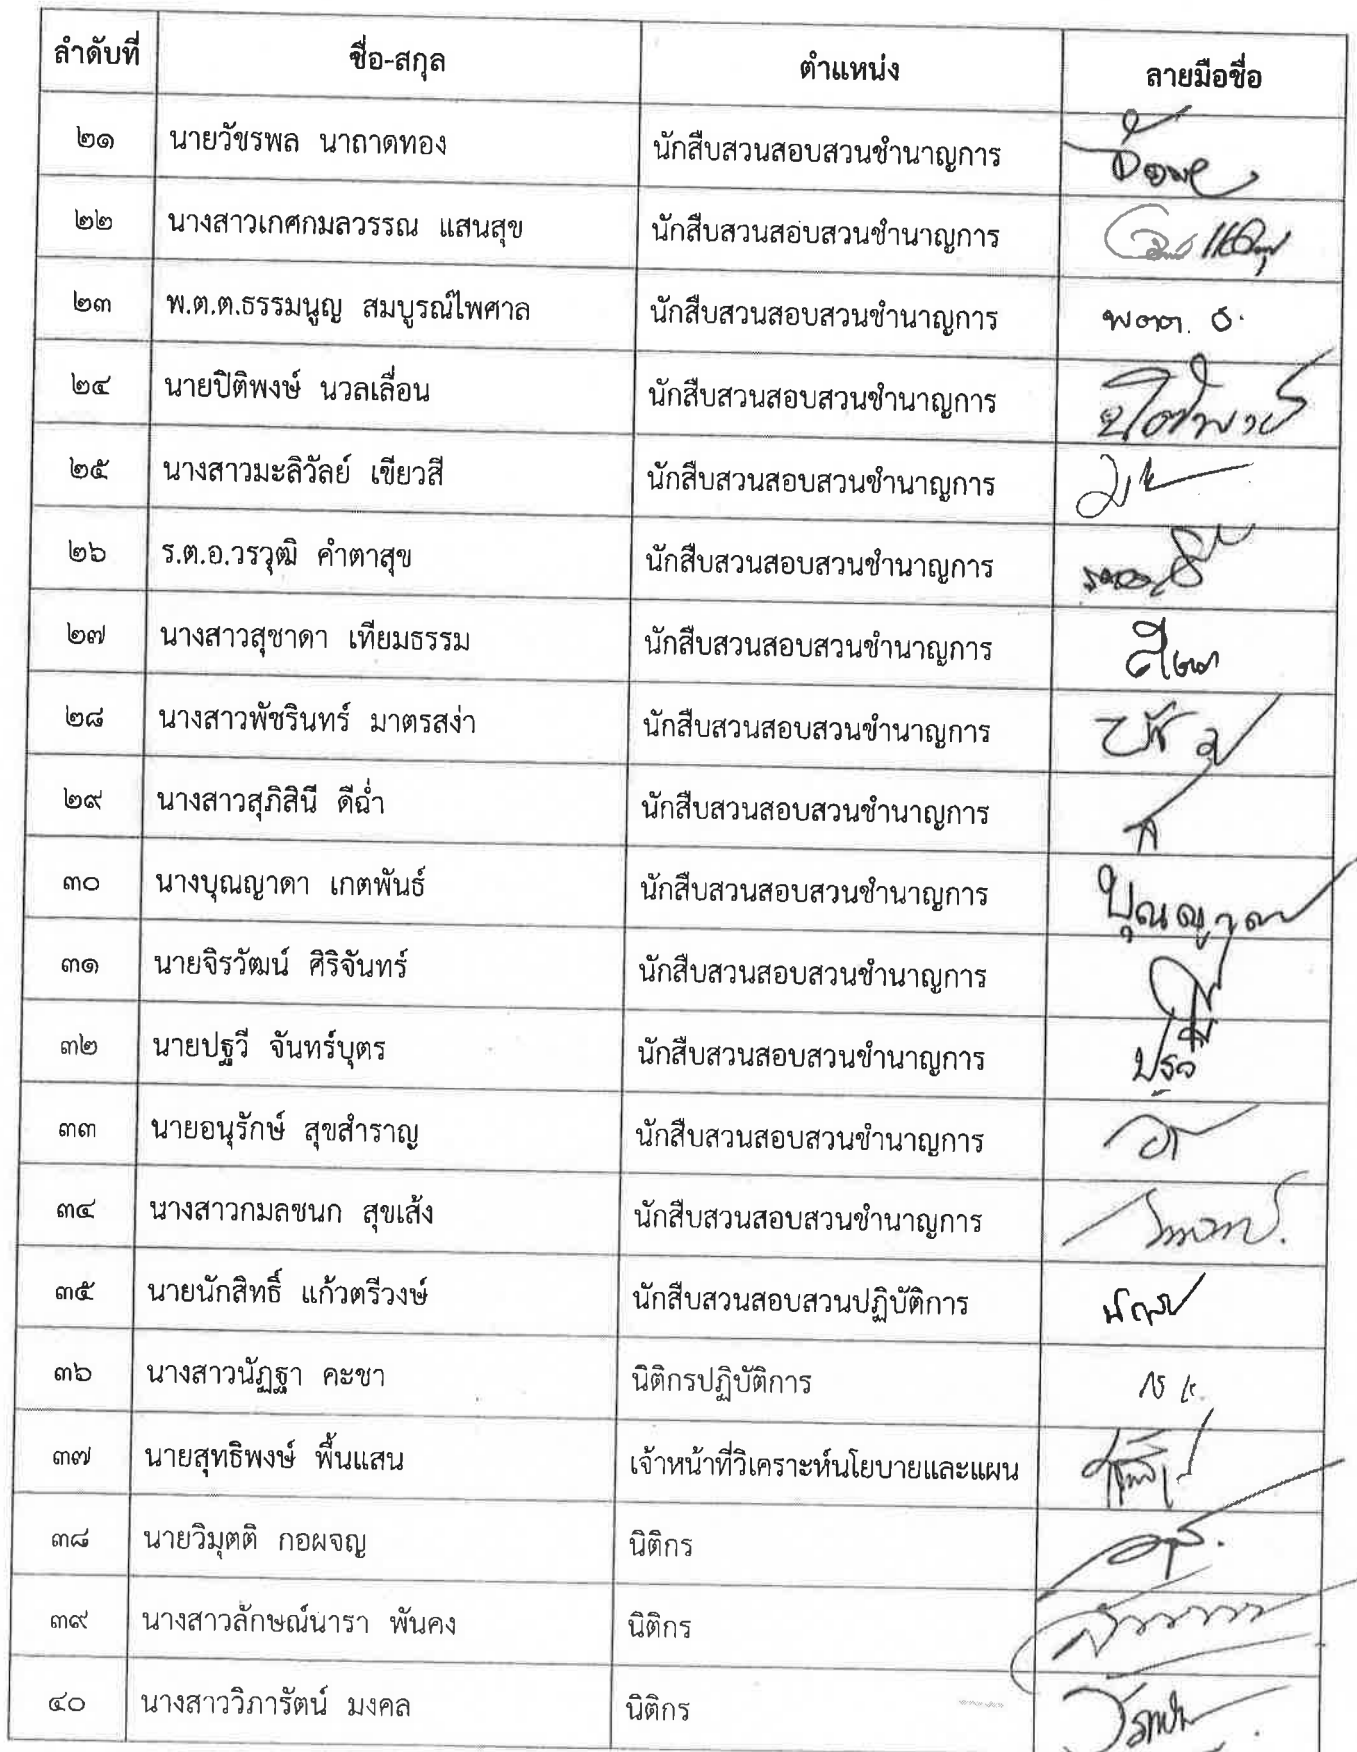 ลำดับที่ ชื่อ-สกุล ตำแหน่ง ลายมือชื่อ
๒๑ นายวัชรพล นาถาดทอง นักสืบสวนสอบสวนชำนาญการ
๒๒ นางสาวเกศกมลวรรณ แสนสุข นักสืบสวนสอบสวนชำนาญการ
๒๓ พ.ต.ต.ธรรมนูญ สมบูรณ์ไพศาล นักสืบสวนสอบสวนชำนาญการ พ.ต.ต. ธ.
๒๔ นายปิติพงษ์ นวลเลื่อน นักสืบสวนสอบสวนชำนาญการ
๒๕ นางสาวมะลิวัลย์ เขียวสี นักสืบสวนสอบสวนชำนาญการ
๒๖ ร.ต.อ.วรวุฒิ คำตาสุข นักสืบสวนสอบสวนชำนาญการ
๒๗ นางสาวสุชาดา เทียมธรรม นักสืบสวนสอบสวนชำนาญการ
๒๘ นางสาวพัชรินทร์ มาตรสง่า นักสืบสวนสอบสวนชำนาญการ
๒๙ นางสาวสุภิสินี ดีฉ่ำ นักสืบสวนสอบสวนชำนาญการ
๓๐ นางบุณญาดา เกตพันธ์ นักสืบสวนสอบสวนชำนาญการ บุณญาดา
๓๑ นายจิรวัฒน์ ศิริจันทร์ นักสืบสวนสอบสวนชำนาญการ
๓๒ นายปฐวี จันทร์บุตร นักสืบสวนสอบสวนชำนาญการ ปฐวี
๓๓ นายอนุรักษ์ สุขสำราญ นักสืบสวนสอบสวนชำนาญการ
๓๔ นางสาวกมลชนก สุขเส้ง นักสืบสวนสอบสวนชำนาญการ
๓๕ นายนักสิทธิ์ แก้วตรีวงษ์ นักสืบสวนสอบสวนปฏิบัติการ
๓๖ นางสาวนัฏฐา คะชา นิติกรปฏิบัติการ
๓๗ นายสุทธิพงษ์ พื้นแสน เจ้าหน้าที่วิเคราะห์นโยบายและแผน
๓๘ นายวิมุตติ กอผจญ นิติกร
๓๙ นางสาวลักษณ์นารา พันคง นิติกร
๔๐ นางสาววิภารัตน์ มงคล นิติกร